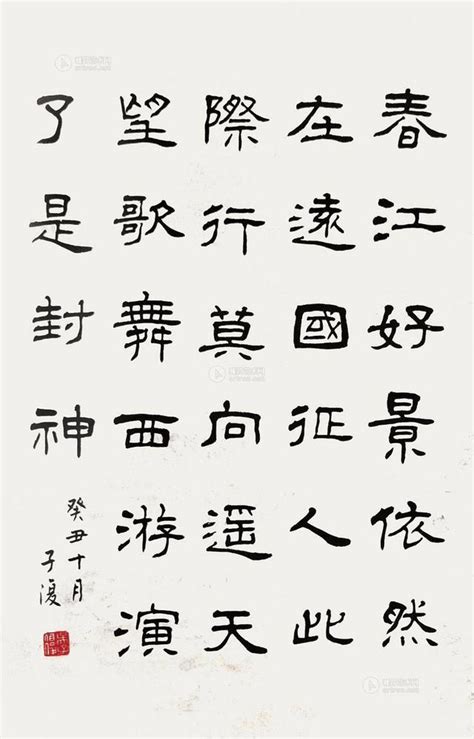 春江好景依然
在遠國征人此
際行莫向遙天
望歌舞西游演
了是封神
癸丑十月
子復